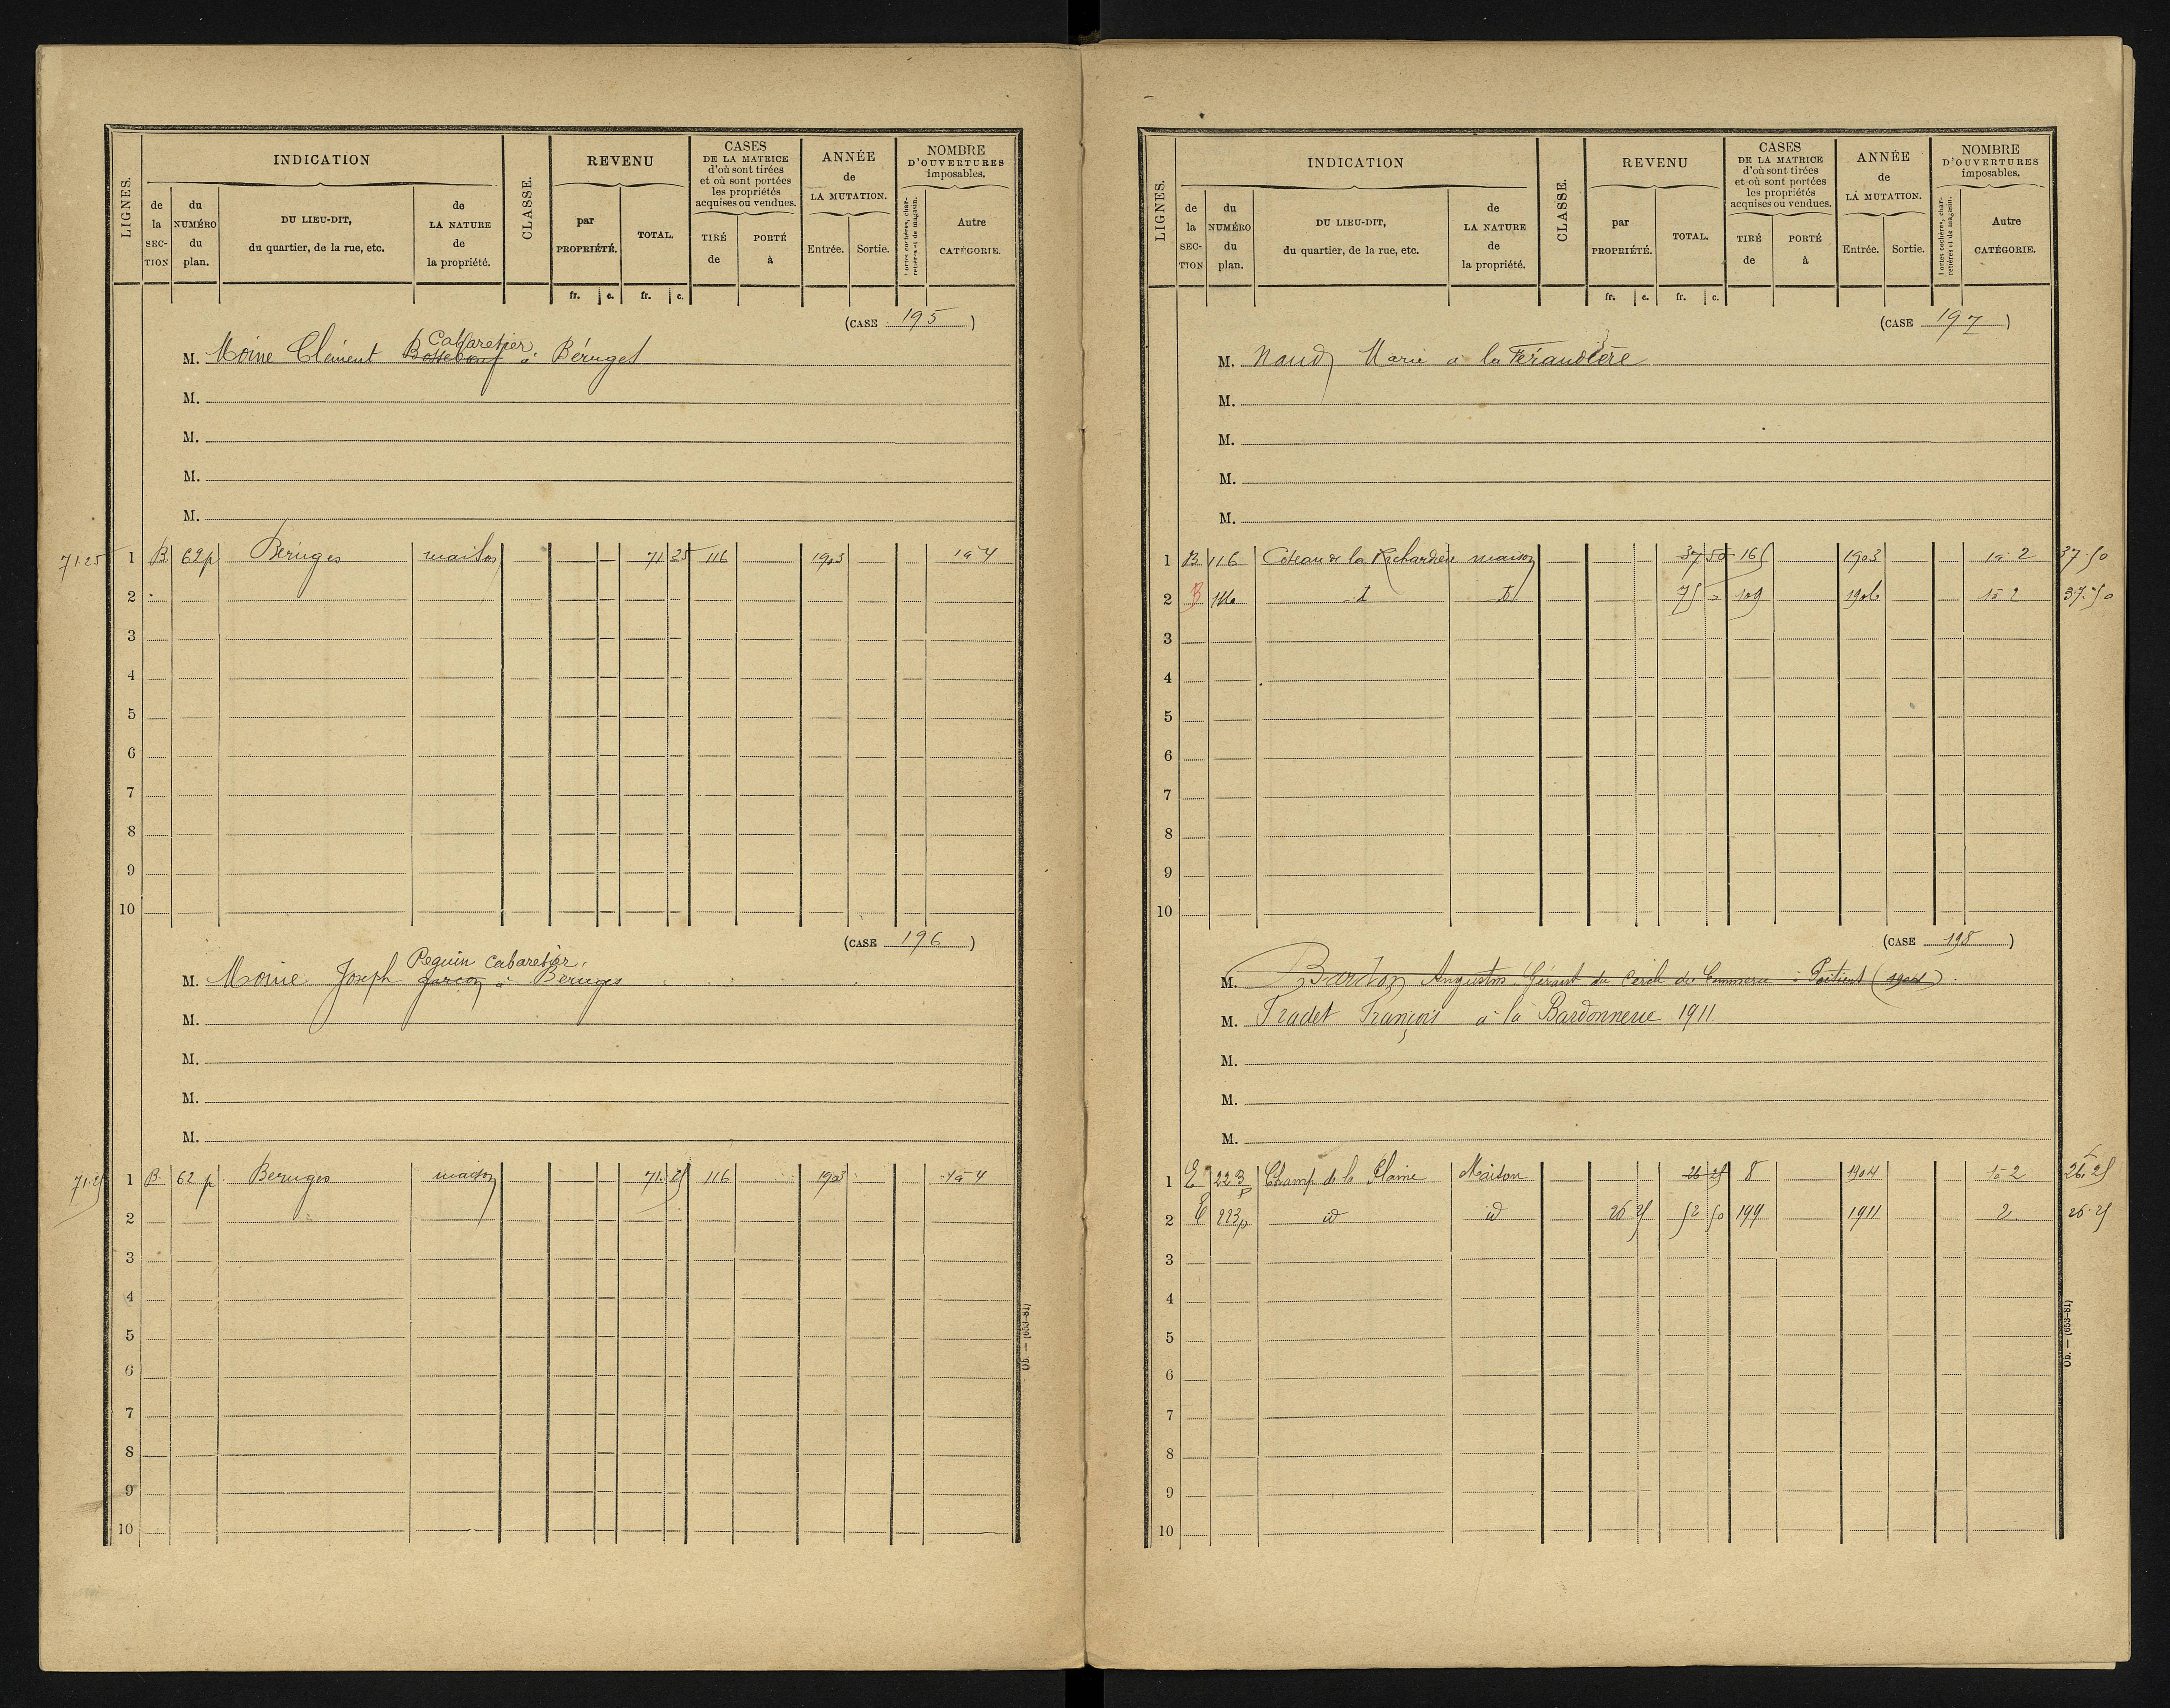 LIGNES.
INDICATION
de la SECTION
du NUMÉRO du plan.
DU LIEU-DIT, du quartier, de la rue, etc.
de LA NATURE de la propriété.
CLASSE.
REVENU
par PROPRIÉTÉ.
TOTAL.
CASES DE LA MATRICE d'où sont tirées et où sont portées les propriétés acquises ou vendues.
TIRÉ de
PORTÉ à
ANNÉE de LA MUTATION.
Entrée.
Sortie.
NOMBRE D'OUVERTURES imposables.
Portes cochères, charretières et de magasin.
Autre CATÉGORIE.
fr. c. fr. c.
(CASE 195)
Cabaretier
M. Moine Clément Bossebœuf à Béruges
M.
M.
M.
M.
71.25 1 B. 62p Béruges maison 71 25 116 1903 1 à 4
2
3
4
5
6
7
8
9
10
(CASE 196)
Peguin Cabaretier.
M. Moine Joseph garçon à Beruges
M.
M.
M.
M.
71.25 1 B. 62 p. Beruges maison 71. 25 116 1903 1 à 4
2
3
4
5
6
7
8
9
10
Ob. — (653-81)
LIGNES.
INDICATION
de la SECTION
du NUMÉRO du plan.
DU LIEU-DIT, du quartier, de la rue, etc.
de LA NATURE de la propriété.
CLASSE.
REVENU
par PROPRIÉTÉ.
TOTAL.
CASES DE LA MATRICE d'où sont tirées et où sont portées les propriétés acquises ou vendues.
TIRÉ de
PORTÉ à
ANNÉE de LA MUTATION.
Entrée.
Sortie.
NOMBRE D'OUVERTURES imposables.
Portes cochères, charretières et de magasin.
Autre CATÉGORIE.
fr. c. fr. c.
(CASE 197)
M. Naudy Marie a la Féraudière
M.
M.
M.
M.
1 B 116 Coteau de la Richardière maison 37 50 165 1903 1 à 2 37.50
2 B 116 75 109 1906 1 à 2 37.50
3
4
5
6
7
8
9
10
(CASE 198)
M. Bardon Augustin Gérant du Cercle du Commerce à Poitiers (1904).
M. Tradet François à la Bardonnerie 1911
M.
M.
M.
1 E 223p Champ de la Plaine Maison 26 25 8 1904 1 à 2 26.25
2 E 223p id id 26 25 52 50 199 1911 2 26.25
3
4
5
6
7
8
9
10
Ob. — (653-81)